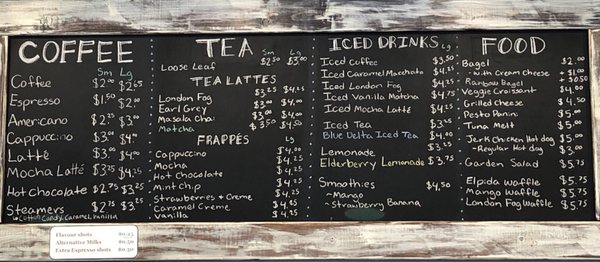 COFFEE
Sm Lg
Coffee $2.00 $2.65
Espresso $1.50 $2.00
Americano $2.25 $3.00
Cappuccino $3.00 $4.00
Latté $3.00 $4.00
Mocha Latté $3.25 $4.25
Hot Chocolate $2.75 $3.25
Steamers $2.75 $3.25
↳ Cotton Candy, Caramel, Vanilla
Flavour shots $0.25
Alternative Milks $0.50
Extra Espresso shots $0.50
TEA
Sm Lg
Loose Leaf $2.50 $3.00
TEA LATTES
London Fog $3.25 $4.25
Earl Grey $3.25 $4.25
Masala Chai $3.00 $4.00
Matcha $3.50 $4.50
FRAPPÉS
Lg
Cappuccino $4.00
Mocha $4.25
Hot Chocolate $4.25
Mint Chip $4.25
Strawberries + Creme $4.25
Caramel Creme $4.25
Vanilla $4.25
ICED DRINKS Lg
Iced Coffee $3.50
Iced Caramel Macchiato $4.25
Iced London Fog $4.25
Iced Vanilla Matcha $4.75
Iced Mocha Latté $4.25
Iced Tea $3.25
Blue Delta Iced Tea $4.00
Lemonade $3.25
Elderberry Lemonade $3.75
Smoothies $4.50
~Mango
~Strawberry Banana
FOOD
Bagel $2.00
- with Cream Cheese + $1.00
- Rainbow Bagel + $0.50
Veggie Croissant $4.00
Grilled Cheese $4.50
Pesto Panini $5.00
Tuna Melt $5.00
Jerk Chicken Hot dog $5.00
- Regular Hot dog $3.00
Garden Salad $5.75
Elpida Waffle $5.75
Mango Waffle $5.75
London Fog Waffle $5.75